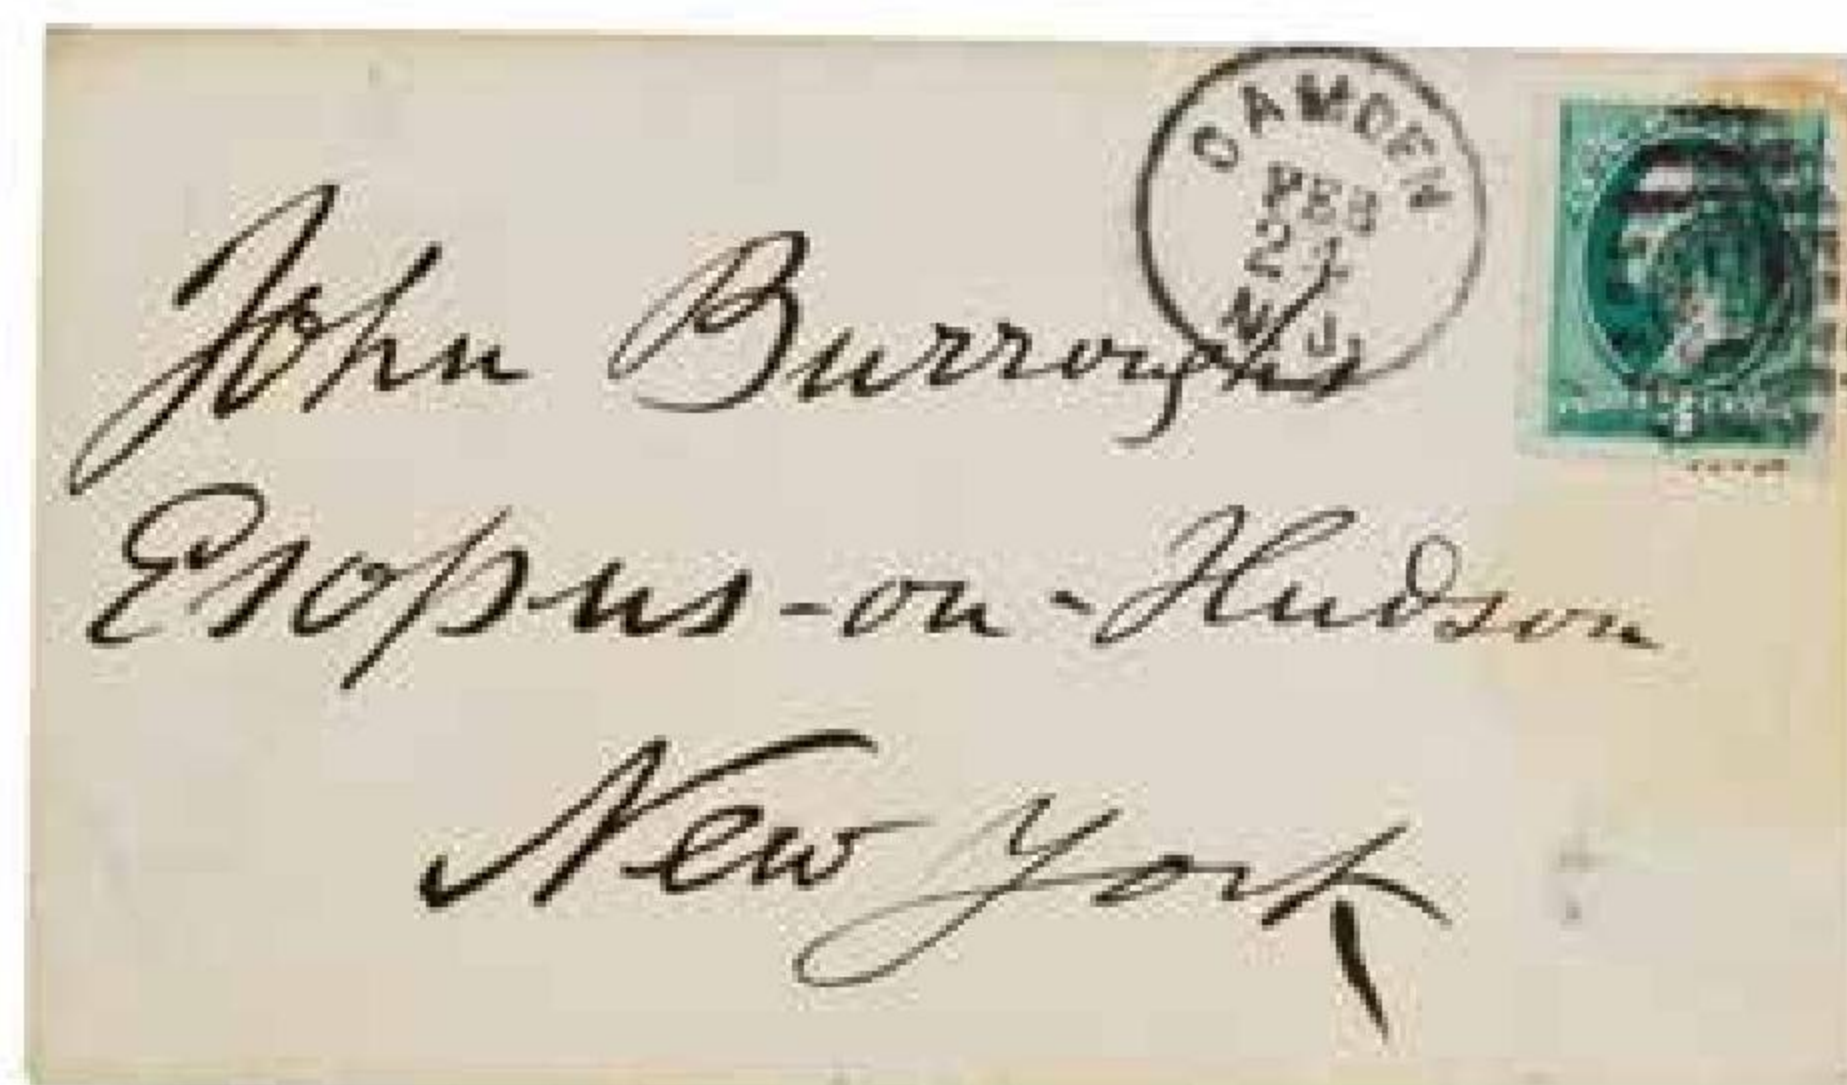 CAMDEN
FEB
N.J.
John Burroughs
Esopus-on-Hudson
New York